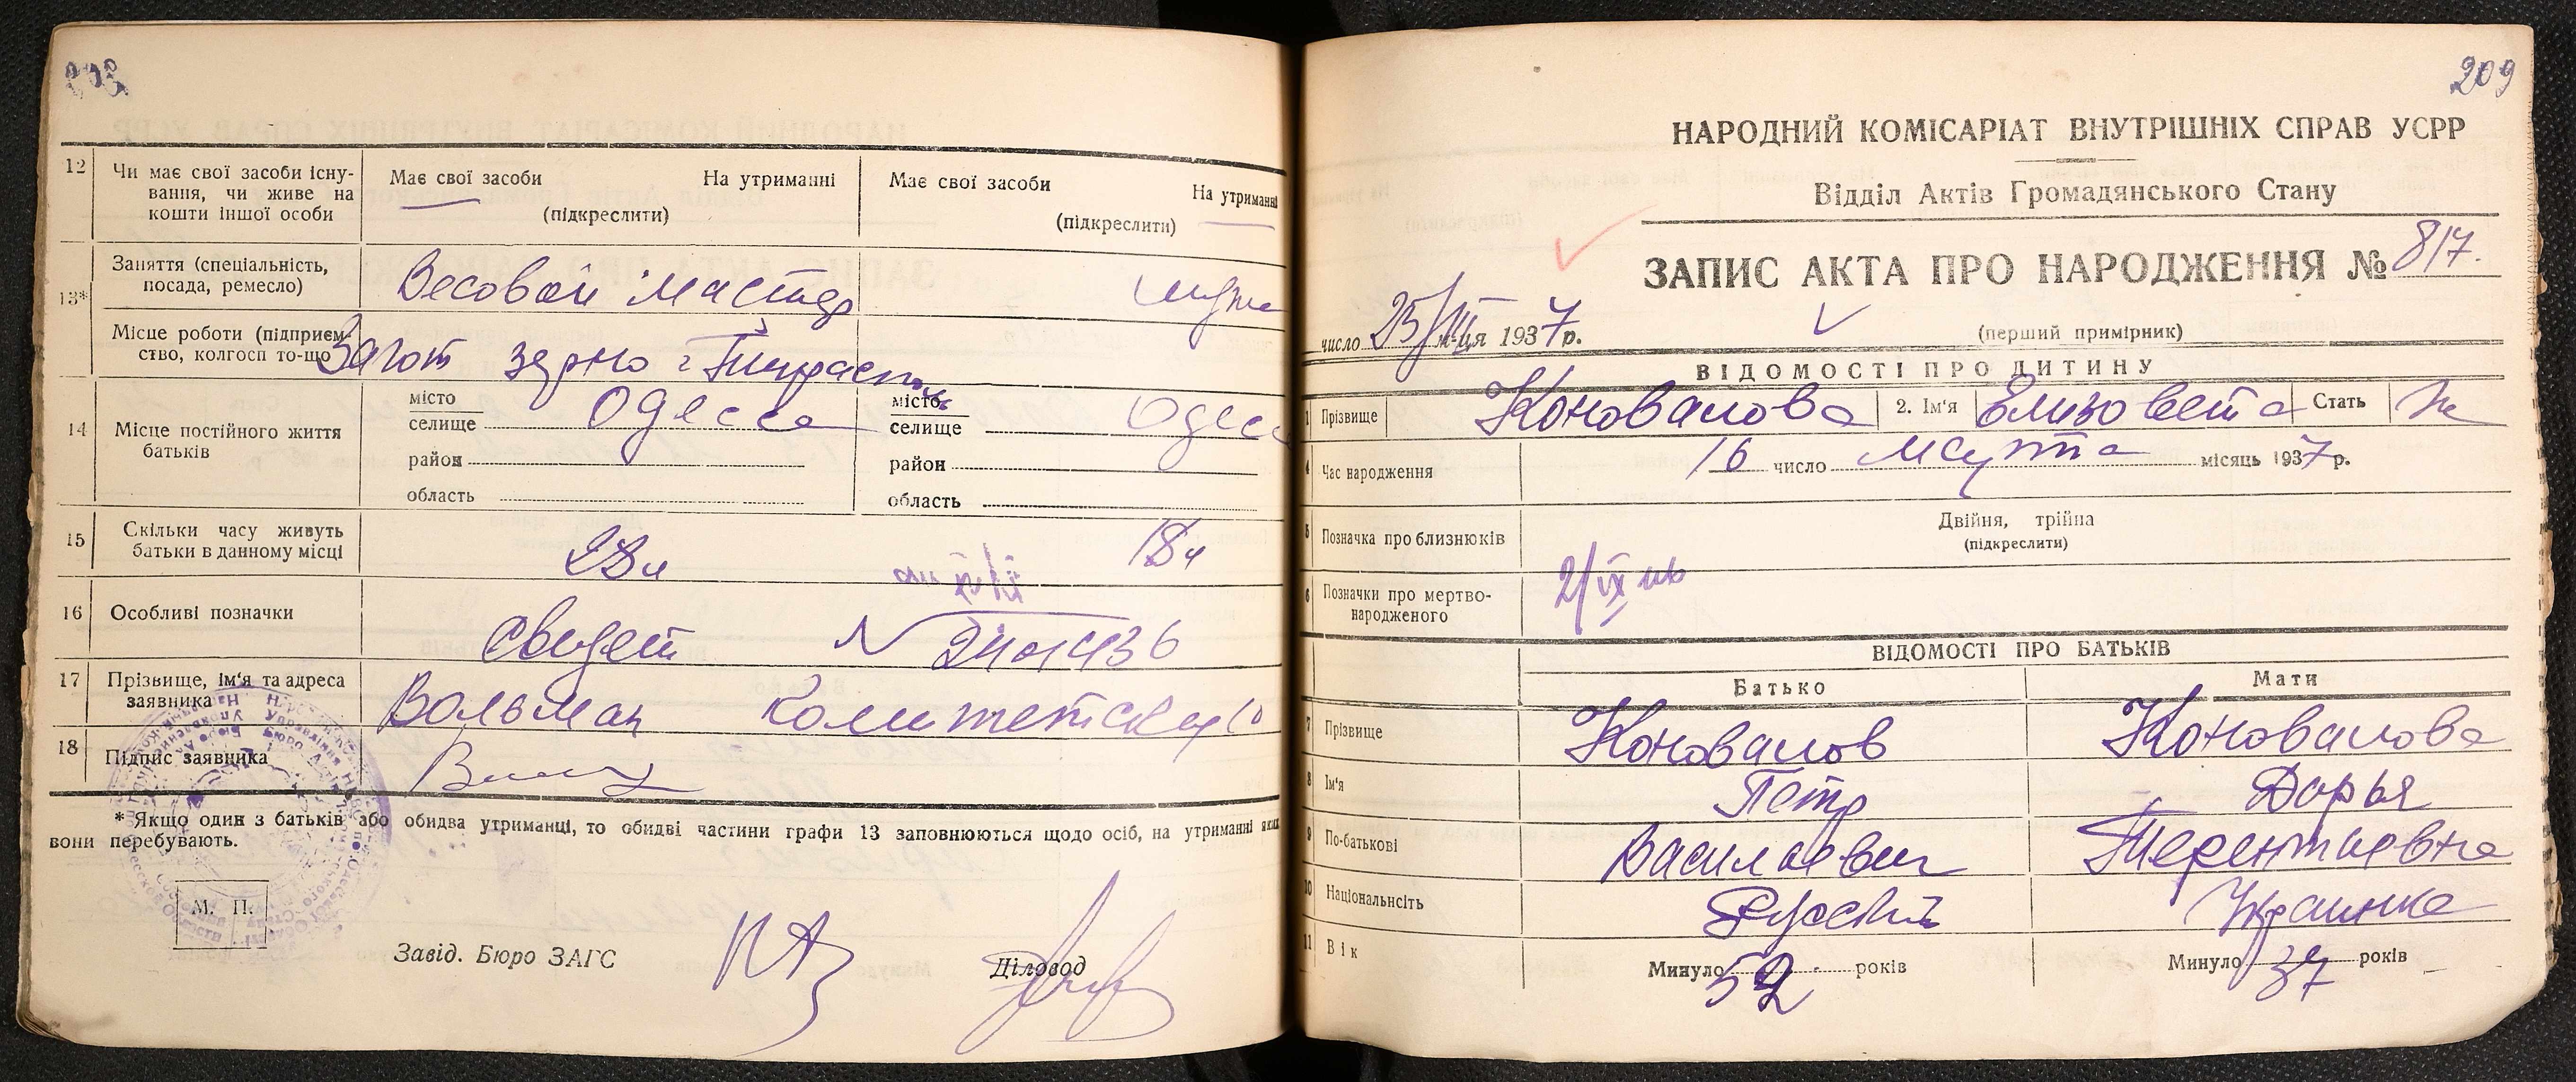 12
Чи має свої засоби існу-
вання, чи живе на
кошти іншої особи
Має свої засоби
На утриманні
(підкреслити)
Має свої засоби
На утриманні
(підкреслити)
13*
Заняття (спеціальність,
посада, ремесло)
Весовой мастер
Місце роботи (підприєм-
ство, колгосп то-що
Загот зерно г Тирасполь
14
Місце постійного життя
батьків
місто
селище
Одесса
район
область
місто
селище
Одесса
район
область
15
Скільки часу живуть
батьки в данному місці
28л
18л
16
Особливі позначки
Свидет N
17
Прізвище, ім'я та адреса
заявника
Вольман
18
Підпис заявника
* Якщо один з батьків або обидва утриманці, то обидві частини графи 13 заповнюються щодо осіб, на утриманні яких
вони перебувають.
М. П.
Завід. Бюро ЗАГС
Діловод
209
НАРОДНИЙ КОМІСАРІАТ ВНУТРІШНІХ СПРАВ УСРР
Відділ Актів Громадянського Стану
ЗАПИС АКТА ПРО НАРОДЖЕННЯ № 817.
число 25/III м-ця 1937 р.
(перший примірник)
ВІДОМОСТІ ПРО ДИТИНУ
1 Прізвище Коновалова 2. Ім'я Елизовета Стать ж
4 Час народження 16 число марта місяць 1937 р.
5 Позначка про близнюків
Двійня, трійна
(підкреслити)
6 Позначки про мертво-
народженого
ВІДОМОСТІ ПРО БАТЬКІВ
Батько
Мати
7 Прізвище Коновалов Коновалова
8 Ім'я Петр Дарья
9 По-батькові Василиевич Терентиевна
10 Національнсіть Русский Украинка
11 Вік Минуло 52 років Минуло 37 років